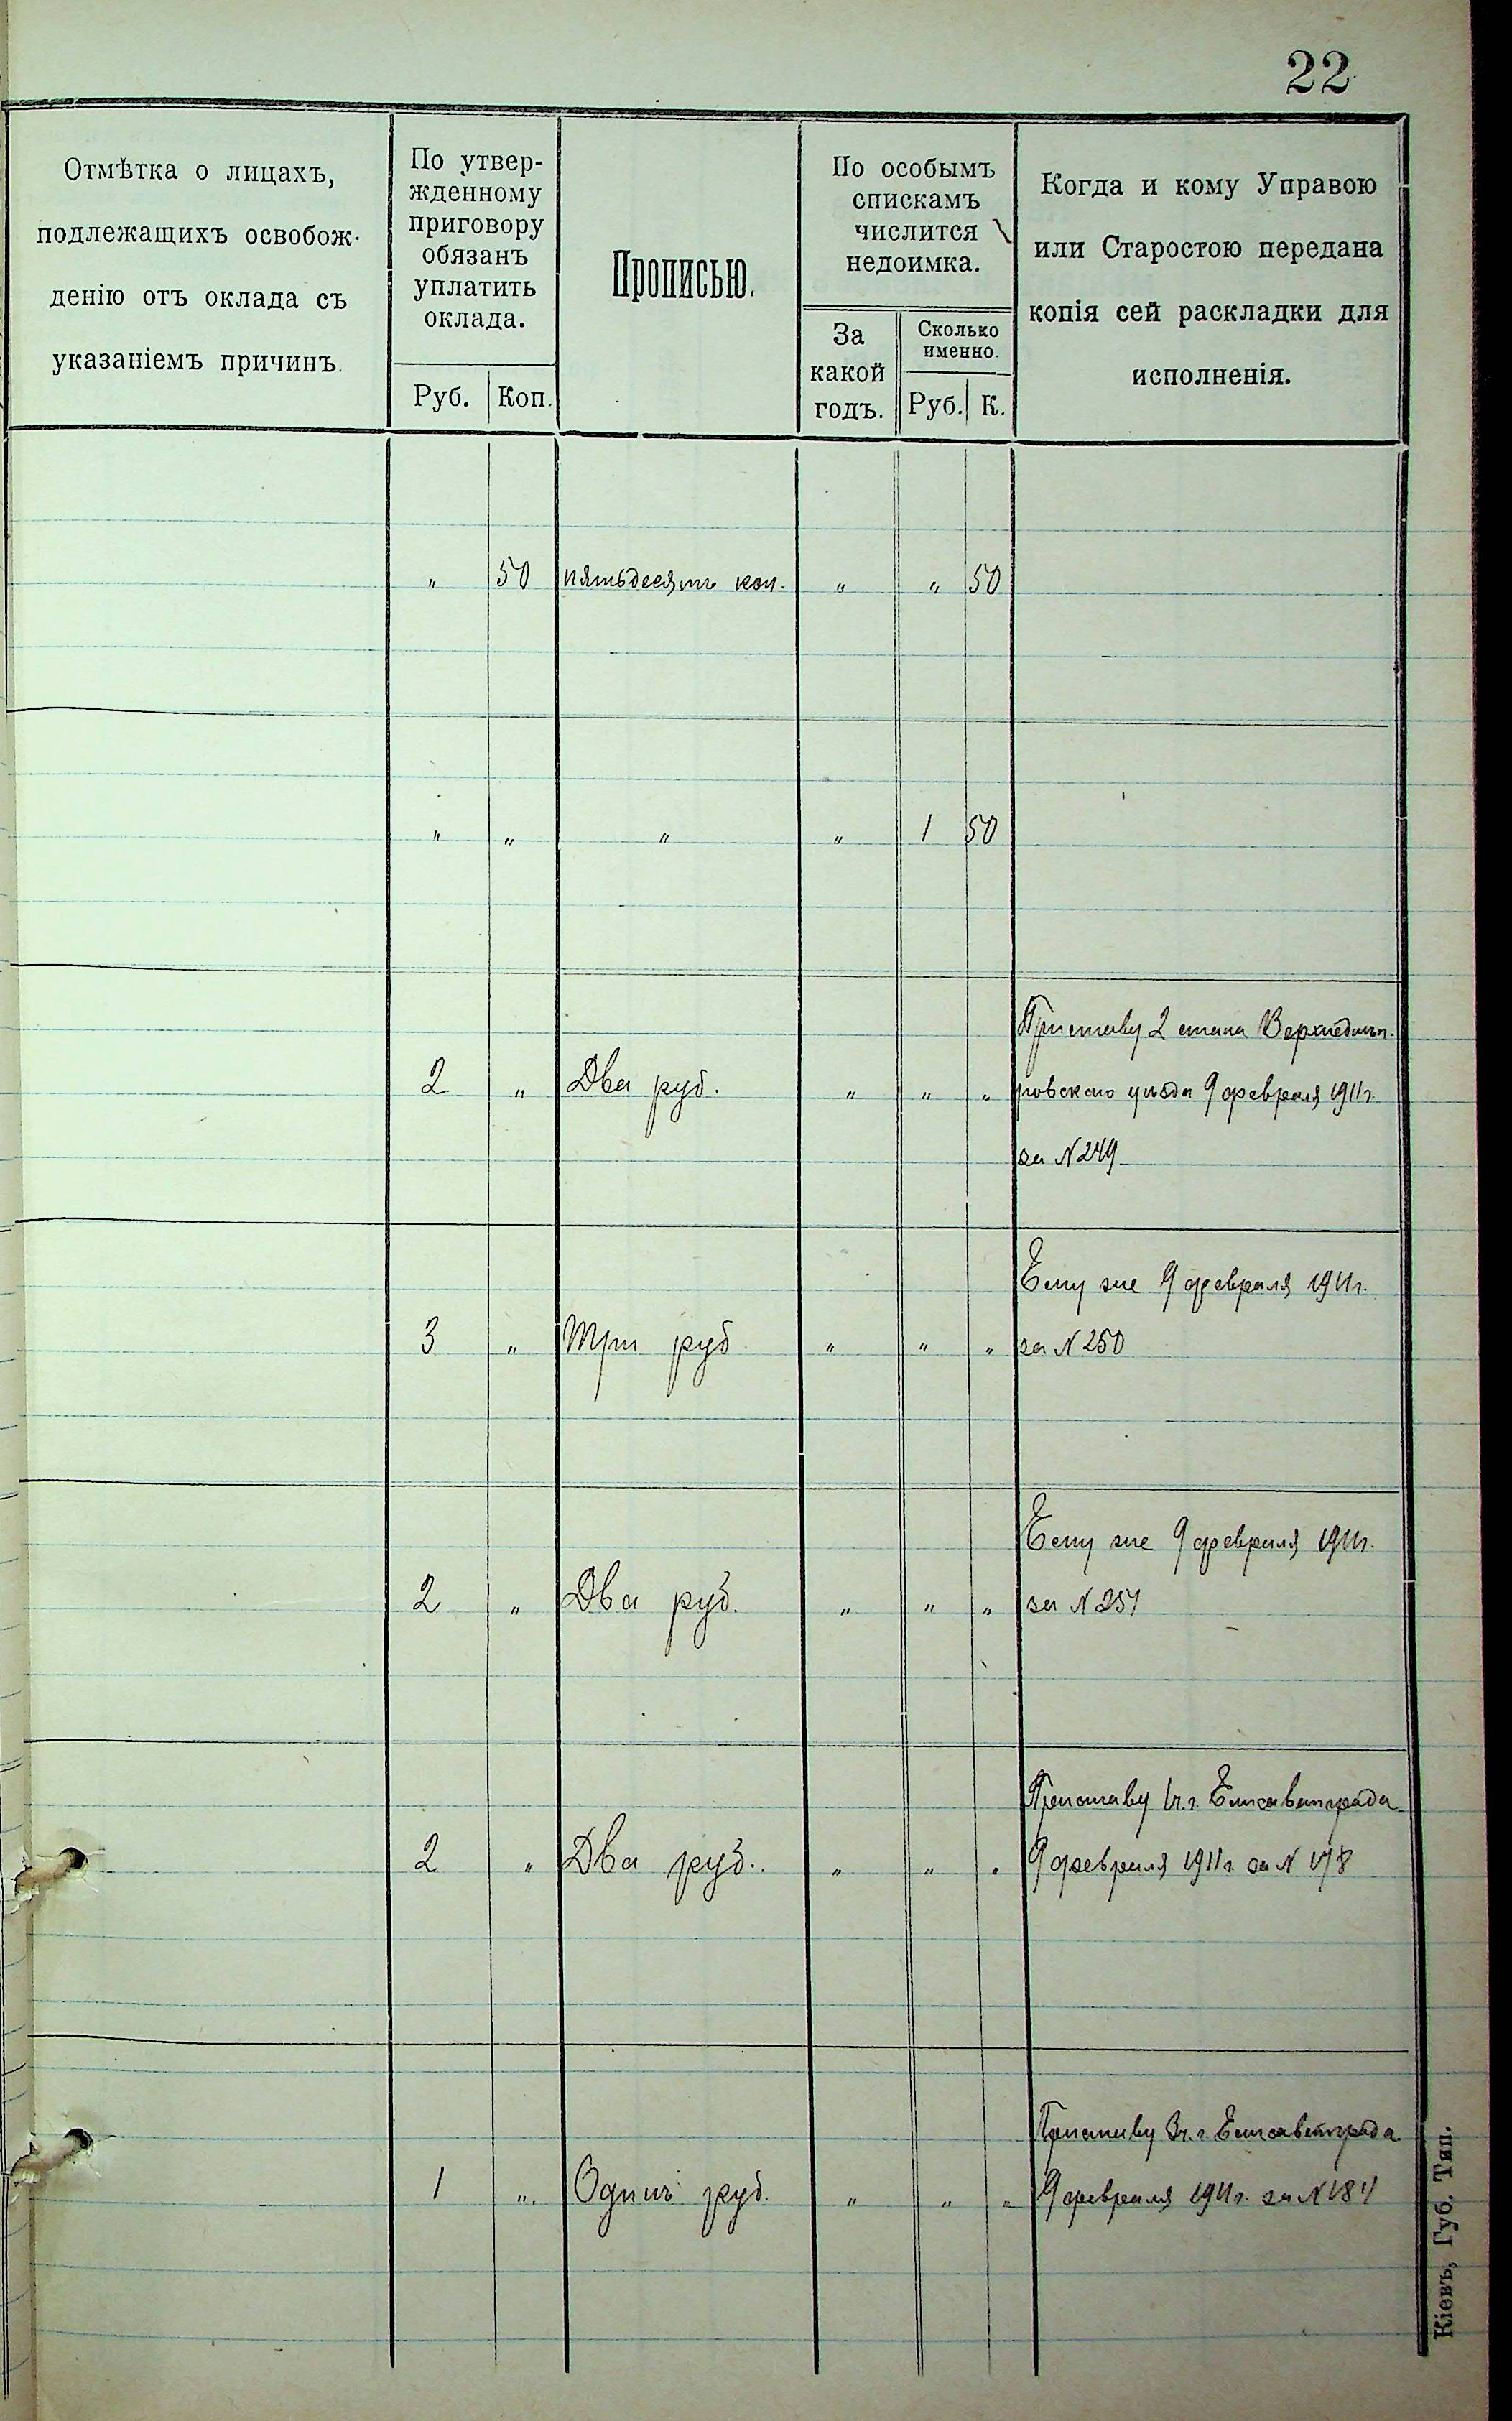 22
Отмѣтка о лицахъ,
подлежащихъ освобож-
денію отъ оклада съ
указаніемъ причинъ.
По утвер-
жденному
приговору
обязанъ
уплатить
оклада.
Руб. Коп.
Прописью.
По особымъ
спискамъ
числится
недоимка.
За
какой
годъ.
Сколько
именно.
Руб. К.
Когда и кому Управою
или Старостою передана
копія сей раскладки для
исполненія.
„ 50 пятьдесятъ коп. „ „ 50
„ „ „ „ 1 50
Приставу 2 стана Верхнеднѣп-
2 „ Два руб. „ „ „ ровскаго уѣзда 9 февраля 1911 г.
за N 249
Ему же 9 февраля 1911 г.
3 „ Три руб „ „ „ за N 250
Ему же 9 февраля 1911 г.
2 „ Два руб. „ „ „ за N 251
Приставу 1 ч. г. Елисаветграда
2 „ Два руб. „ „ „ 9 февраля 1911 г. за N 178
Приставу 3 ч. г. Елисаветграда
1 „ Одинъ руб. „ „ „ 9 февраля 1911 г. за N 184
Кіевъ, Губ. Тип.